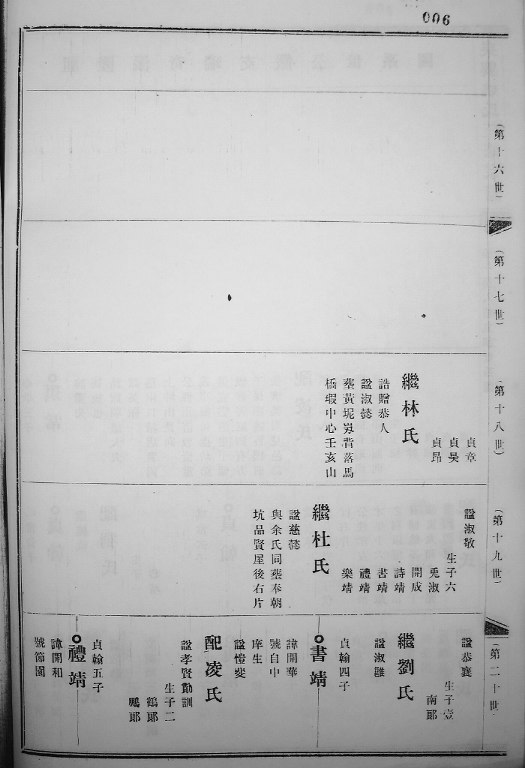 006
(第十六世)
(第十七世)
(第十八世)
貞章
貞昊
貞昂
繼林氏
誥贈恭人
諡淑懿
葬黃坭崀背落馬
橋堰中心壬亥山
(第十九世)
諡淑敬
生子六
兆淑
開成
詩靖
書靖
禮靖
樂靖
繼杜氏
諡慈懿
與余氏同葬奉朝
坑品賢屋後右片
第二十世
諡恭襄
生子壹
南郎
繼劉氏
諡淑
貞翰四子
書靖
諱開華
號自中
庠生
諡愷斐
配凌氏
諡孝賢勤訓
生子二
鶴郎
鳳郎
貞翰五子
禮靖
諱開和
號節園